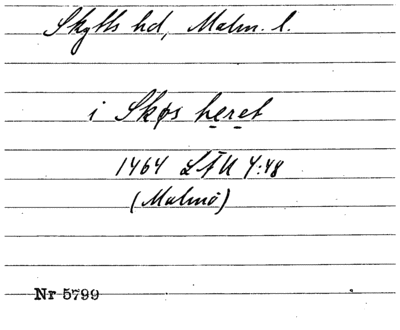 Skytts hd, Malm. l.
i Skøs heret
1464 LÄU 4:48
(Malmö)
Nr 5799